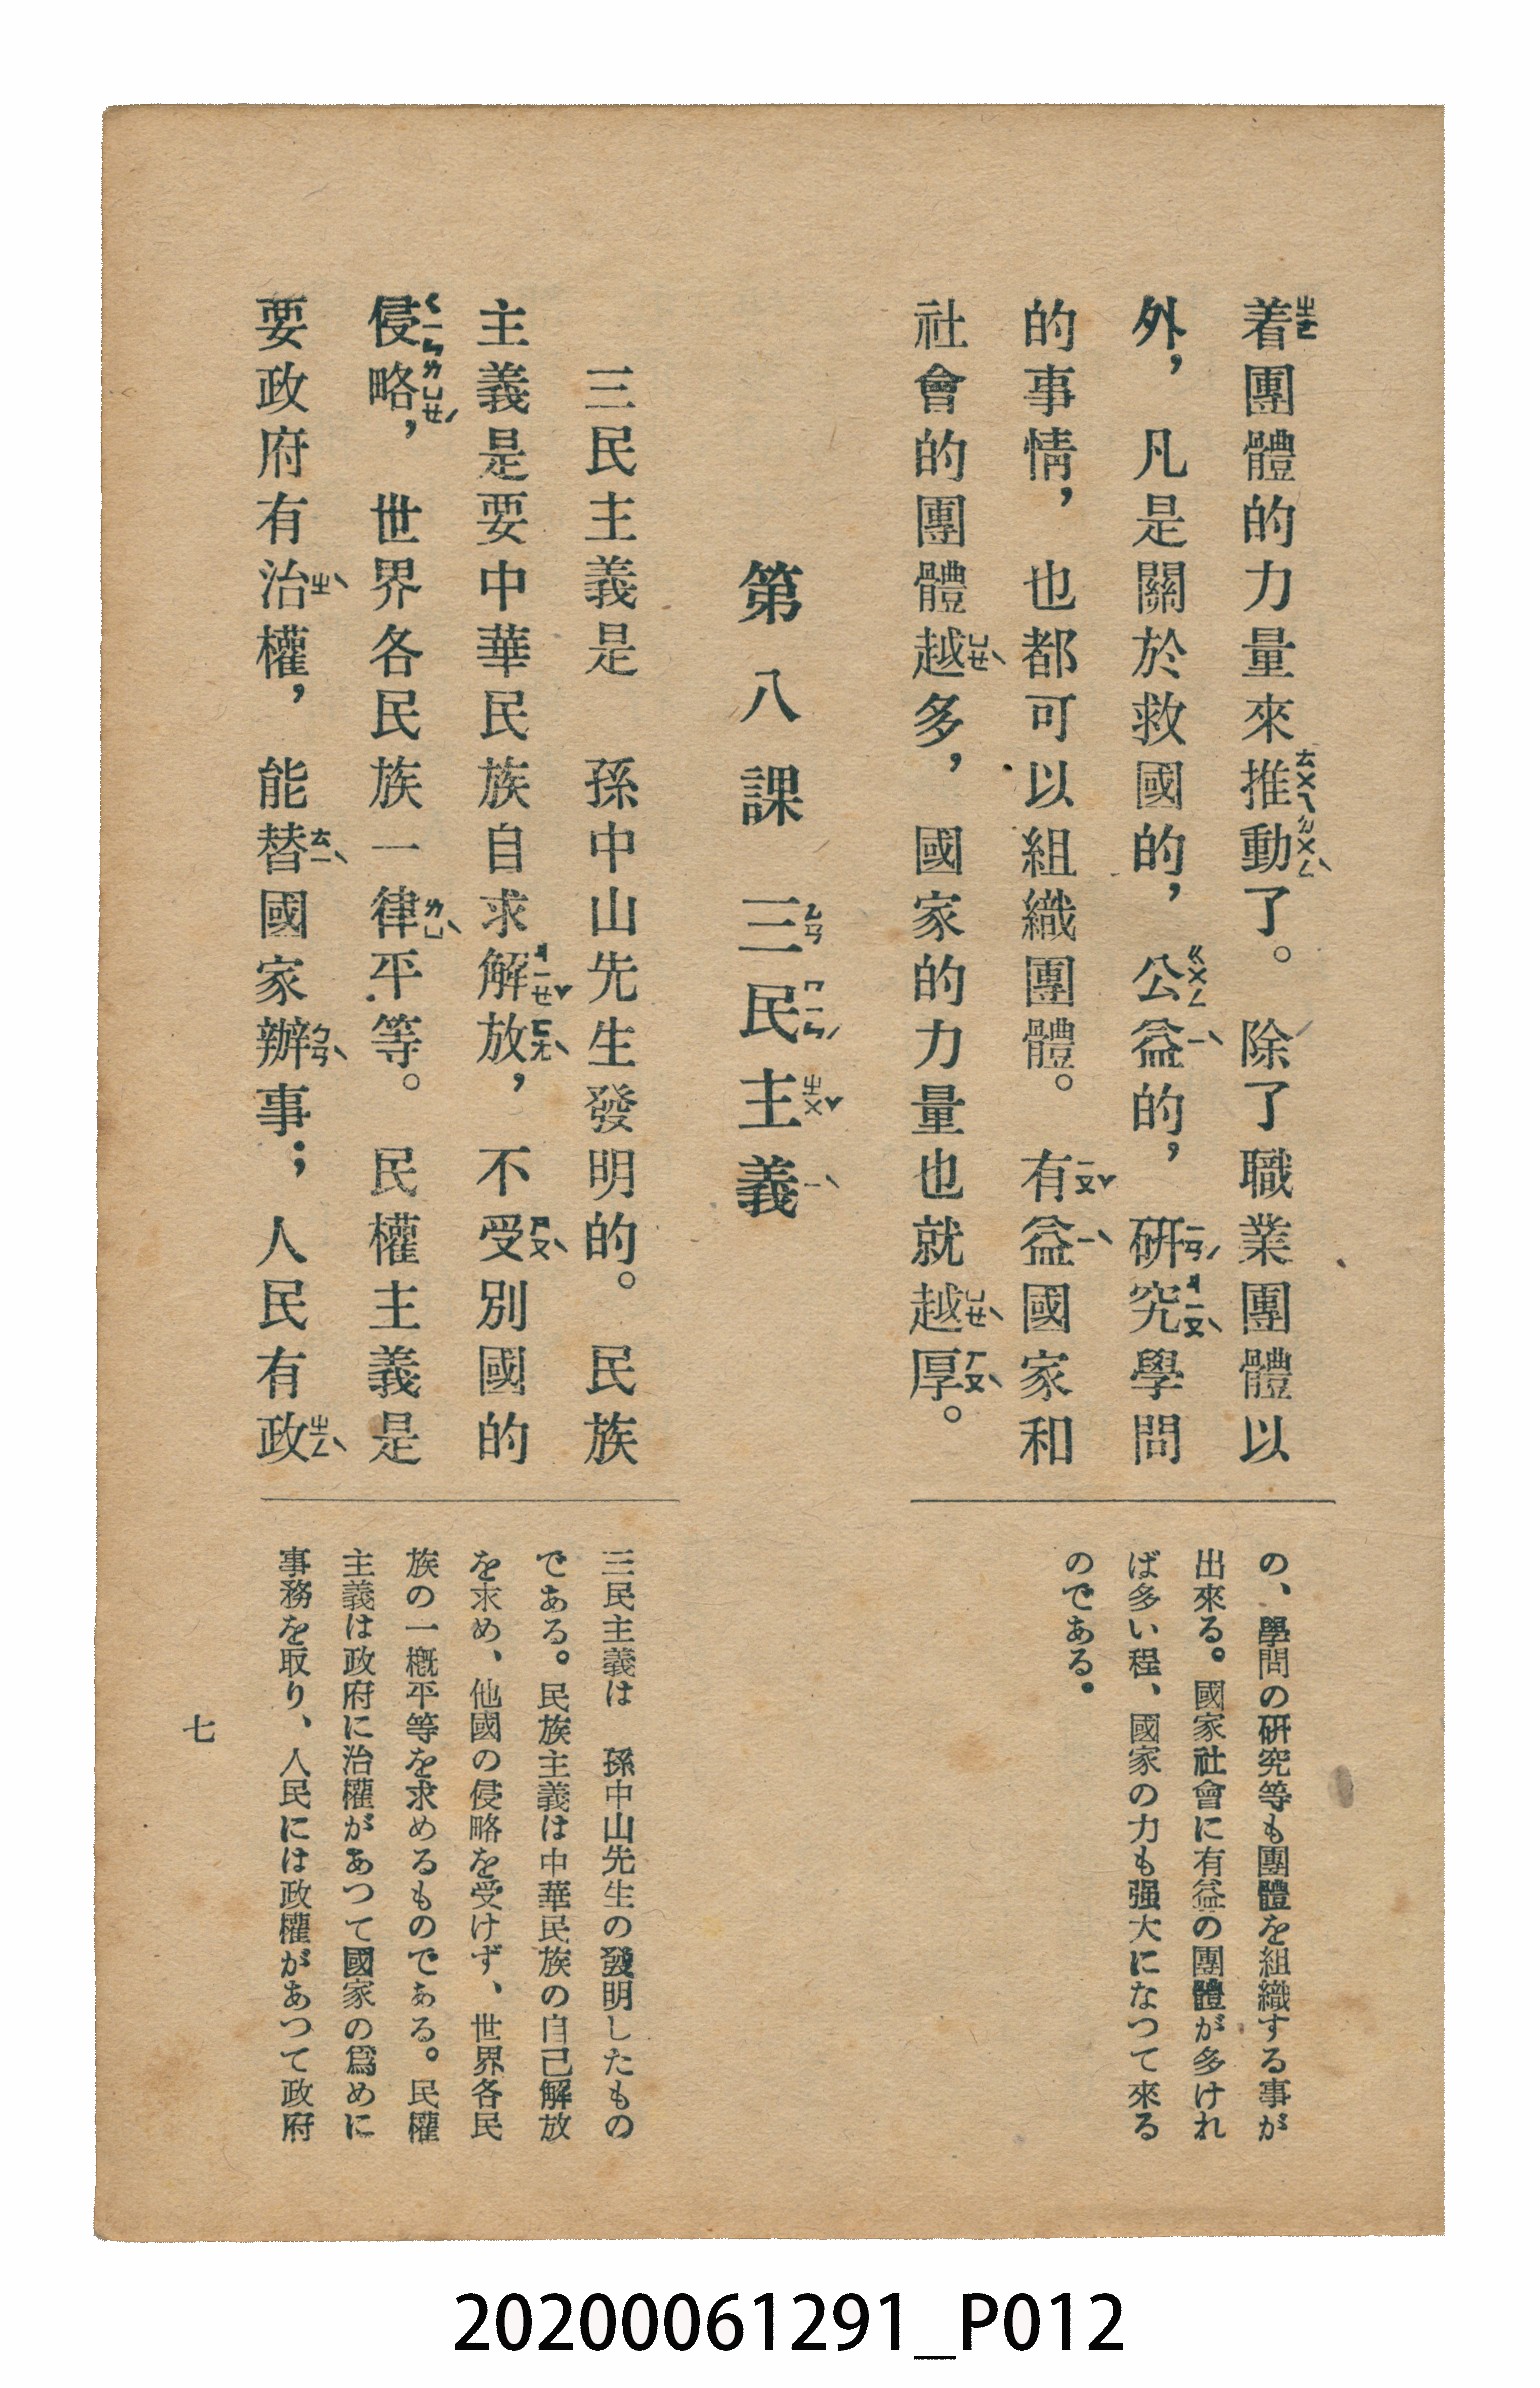 着團體的力量來推動了。除了職業團體以
外，凡是關於救國的，公益的，研究學問
的事情，也都可以組織團體。有益國家和
社會的團體越多，國家的力量也就越厚。
の、學問の研究等も團體を組織する事が
出來る。國家社會に有益の團體が多けれ
ば多い程、國家の力も强大になつて來る
のである。
第八課 三民主義
三民主義是 孫中山先生發明的。民族
主義是要中華民族自求解放，不受別國的
侵略，世界各民族一律平等。民權主義是
要政府有治權，能替國家辦事；人民有政
三民主義は 孫中山先生の發明したもの
である。民族主義は中華民族の自己解放
を求め、他國の侵略を受けず、世界各民
族の一槪平等を求めるものである。民權
主義は政府に治權があつて國家の爲めに
事務を取り、人民には政權があつて政府
七
20200061291_P012